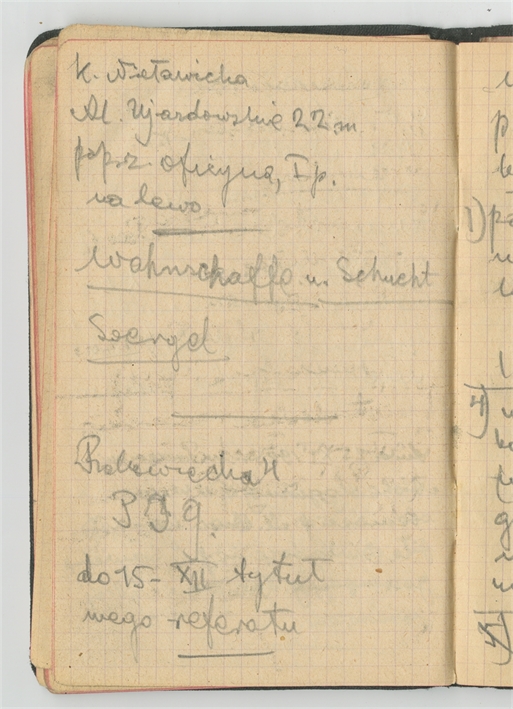 K. Nietawicka
Al. Ujazdowskie 22 m
pop.z. oficyna, I p.
na lewo
Wahnschaffe u. Schucht
Soergel
Rakowiecka 4
P I G.
do 15 - XII tytuł
mego referatu
1)
4)
5)